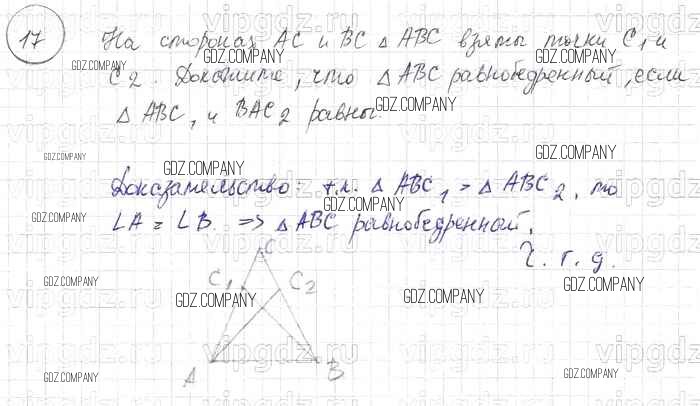 17
На сторонах AC и BC △ ABC взяты точки C1 и
C2. Докажите, что △ ABC равнобедренный, если
△ ABC1 и BAC2 равны.
Доказательство: т.к. △ ABC1 = △ ABC2, то
∠A = ∠B. => △ ABC равнобедренный.
Ч. т. д.
C
C1 C2
A B
GDZ.COMPANY
vipgdz.ru